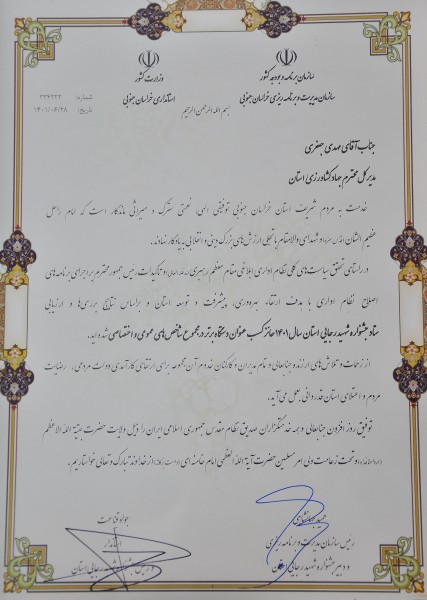 سازمان برنامه و بودجه کشور
سازمان مدیریت و برنامه ریزی خراسان جنوبی
وزارت کشور
استانداری خراسان جنوبی
شماره: ۳۳۴۳۳۳
تاریخ: ۱۴۰۱/۰۶/۲۸
بسم الله الرحمن الرحیم
جناب آقای مهدی جعفری
مدیر کل محترم جهاد کشاورزی استان
خدمت به مردم شریف استان خراسان جنوبی توفیقی الهی، نعمتی مشترک و میراثی ماندگار است که امام راحل
عظیم الشان و شهدای والامقام با تجلی ارزش های بزرگ دینی و انقلابی به یادگار نهادند.
در راستای تحقق سیاست های کلی نظام اداری ابلاغی مقام معظم رهبری و تاکیدات رئیس جمهور محترم بر اجرای برنامه های
اصلاح نظام اداری با هدف ارتقاء بهره وری، پیشرفت و توسعه استان و براساس نتایج بررسی ها و ارزیابی
ستاد جشنواره شهید رجایی استان سال ۱۴۰۱ حائز کسب عنوان دستگاه برتر در مجموع شاخص های عمومی و اختصاصی شده اید.
از زحمات و تلاش های ارزنده جنابعالی و تمام مدیران و کارکنان خدوم آن مجموعه برای ارتقای کارآمدی دولت مردمی، رضایت
مردم و اعتلای استان قدردانی بعمل می آید.
توفیق روز افزون جنابعالی و همه خدمتگزاران صدیق نظام مقدس جمهوری اسلامی ایران را ذیل ولایت حضرت بقیة الله الاعظم
و تحت زعامت ولی امر مسلمین حضرت آیة الله العظمی امام خامنه ای از خداوند تبارک و تعالی خواستاریم.
رئیس سازمان مدیریت و برنامه ریزی
و دبیر جشنواره شهید رجایی استان
جواد قناعت
استاندار
و رئیس جشنواره شهید رجایی استان